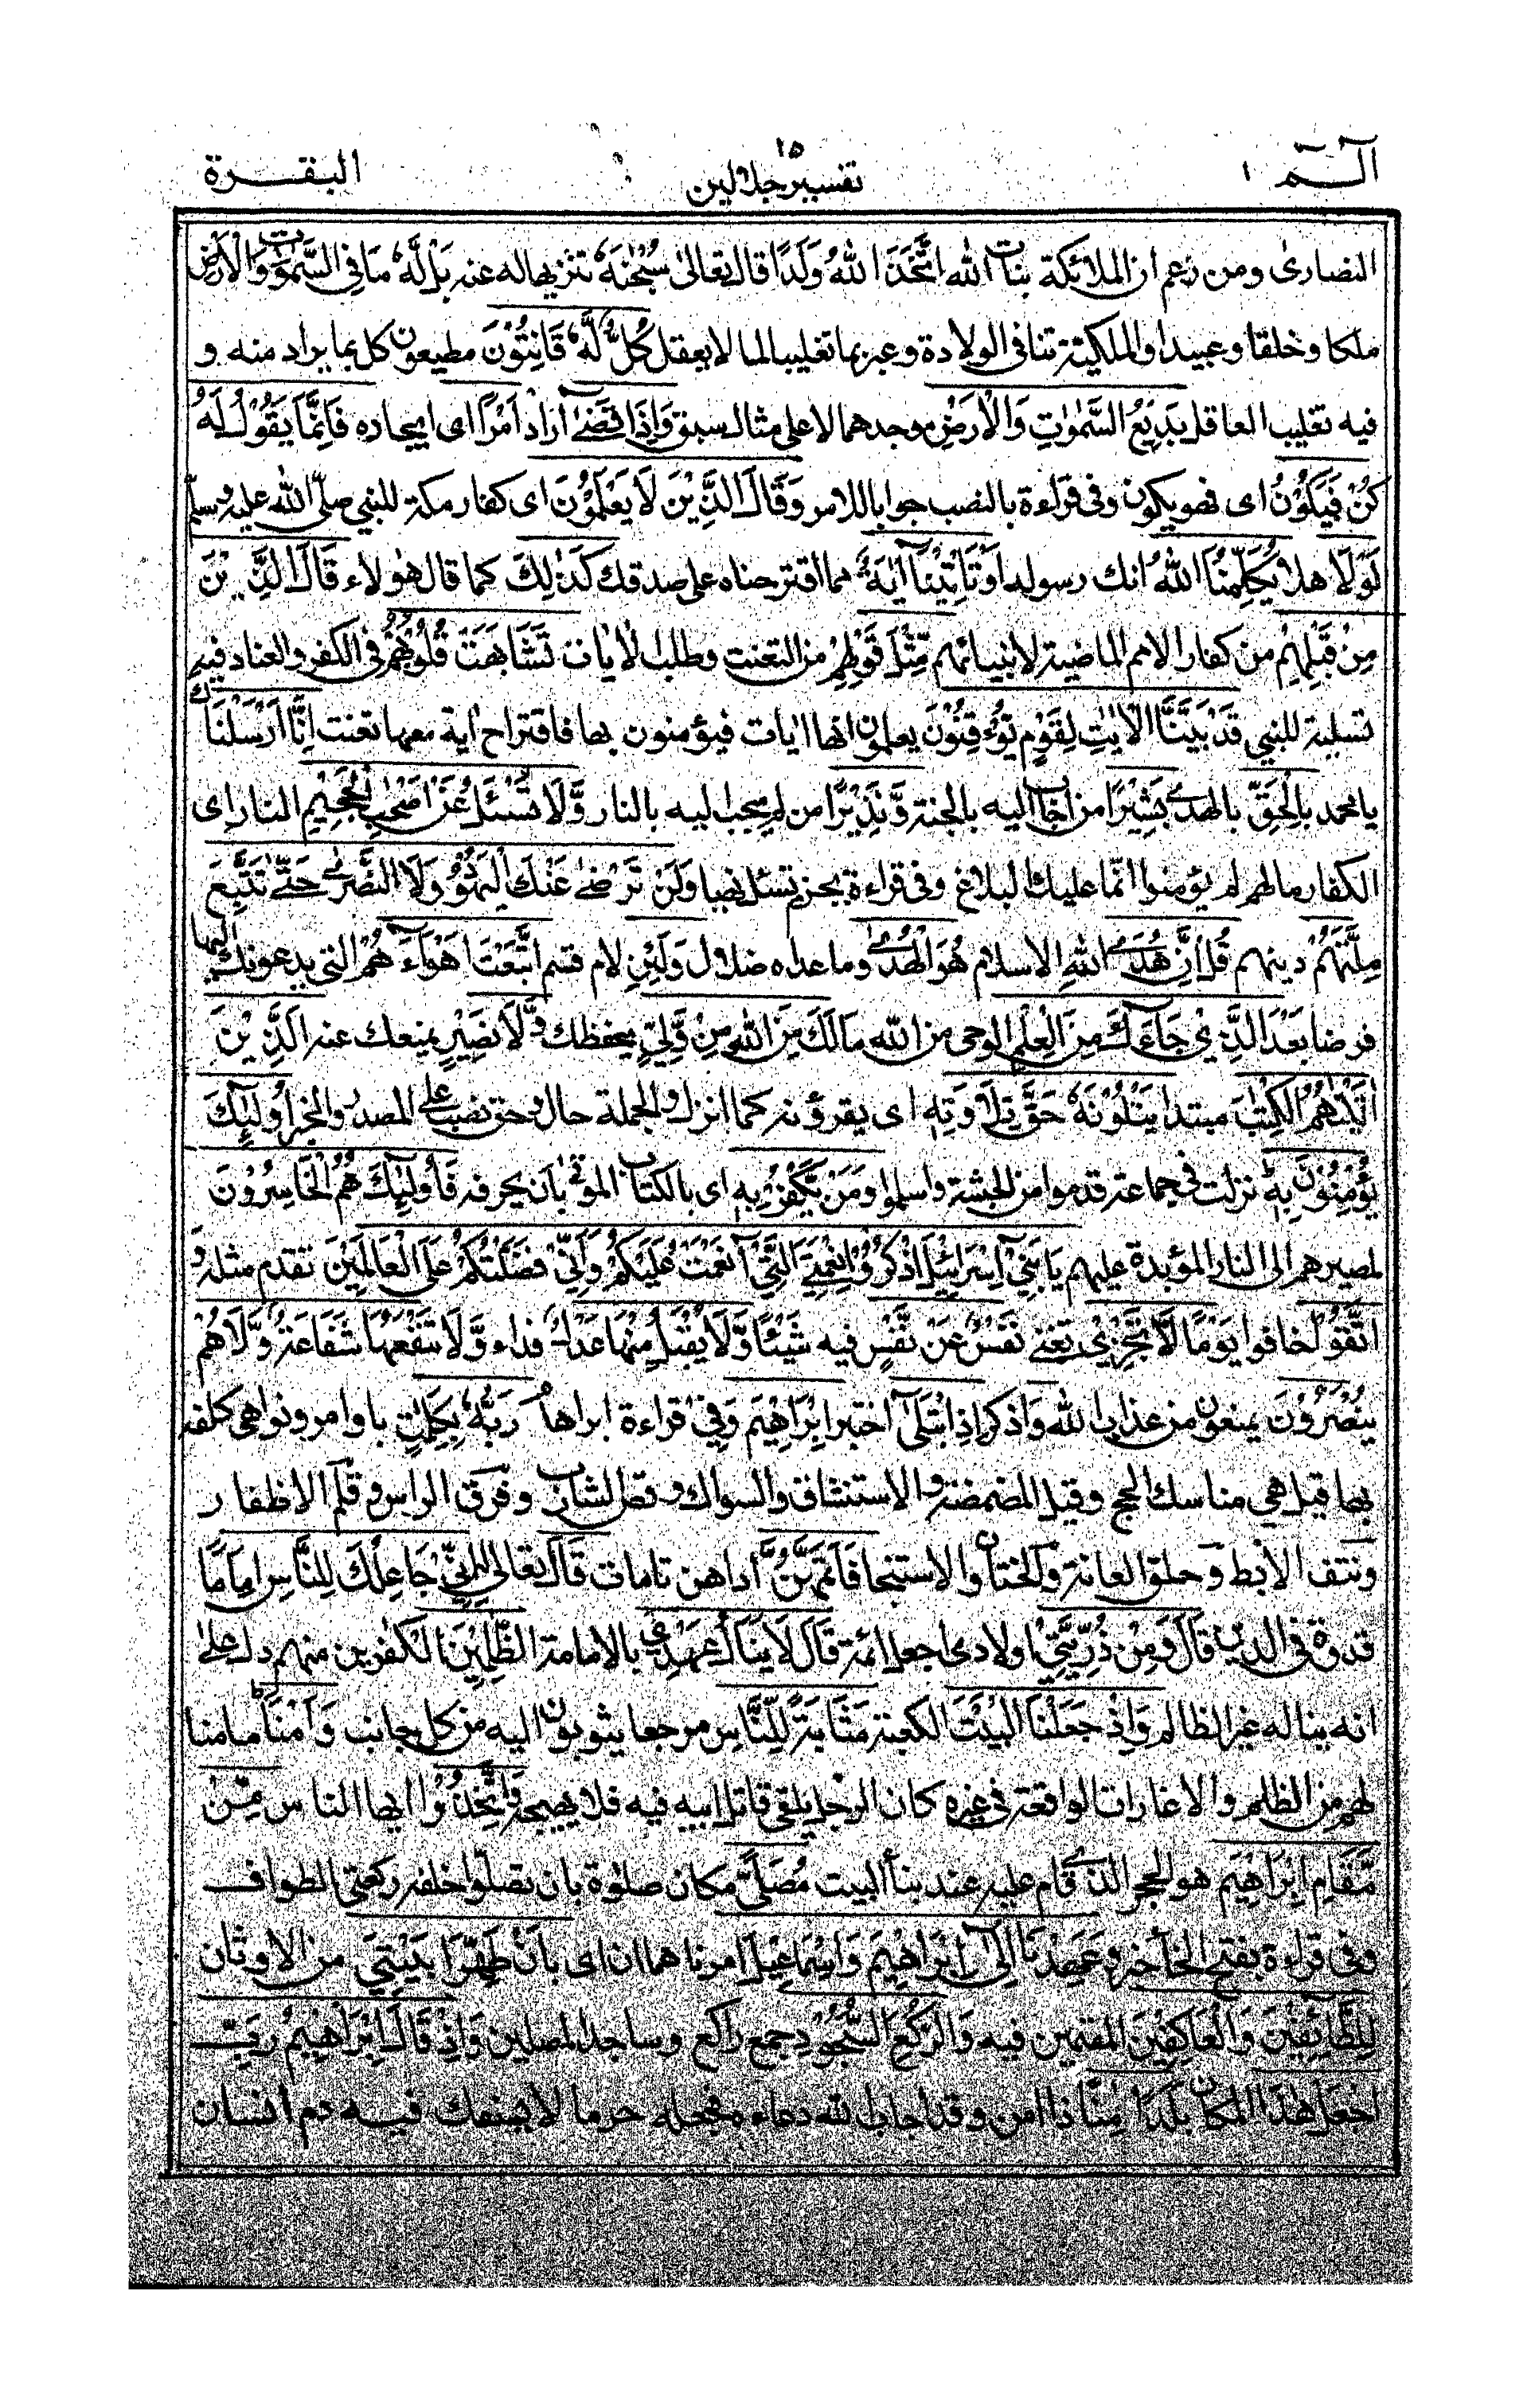 الــم ١
١٥
تفسير جلالين
البقرة
النصارى ومن زعم ان الملائكة بنات الله اتَّخَذَ اللهُ وَلَدًا قال تعالى سُبْحٰنَهٗ تنزيها له عنه بَلْ لَّهٗ مَا فِي السَّمٰوٰتِ وَالْاَرْضِ
ملكا وخلقا وعبيدا والملكية تنافى الولادة وعبر بما تغليبا لما لا يعقل كُلٌّ لَّهٗ قَانِتُوْنَ مطيعون كل بما يراد منه و
فيه تغليب العاقل بَدِيْعُ السَّمٰوٰتِ وَالْاَرْضِ موجدهما لا على مثال سبق وَاِذَا قَضٰۤى اراد اَمْرًا اى ايجاده فَاِنَّمَا يَقُوْلُ لَهٗ
كُنْ فَيَكُوْنُ اى فهو يكون وفى قراءة بالنصب جوابا للامر وَقَالَ الَّذِيْنَ لَا يَعْلَمُوْنَ اى كفار مكة للنبي صلى الله عليه وسلم
لَوْلَا هلا يُكَلِّمُنَا اللهُ انك رسوله اَوْ تَاْتِيْنَاۤ اٰيَةٌ مما اقترحناه على صدقك كَذٰلِكَ كما قال هؤلاء قَالَ الَّذِيْنَ
مِنْ قَبْلِهِمْ من كفار الامم الماضية لانبيائهم مِّثْلَ قَوْلِهِمْ من التعنت وطلب الايات تَشَابَهَتْ قُلُوْبُهُمْ فى الكفر والعناد فيه
تسلية للنبي قَدْ بَيَّنَّا الْاٰيٰتِ لِقَوْمٍ يُّوْقِنُوْنَ يعلمون انها ايات فيؤمنون بها فاقتراح اية معها تعنت اِنَّاۤ اَرْسَلْنٰكَ
يا محمد بِالْحَقِّ بالهدى بَشِيْرًا من اجاب اليه بالجنة وَّنَذِيْرًا من لم يجب اليه بالنار وَّلَا تُسْئَلُ عَنْ اَصْحٰبِ الْجَحِيْمِ النار اى
الكفار مالهم لم يؤمنوا انما عليك البلاغ وفى قراءة بجزم تسئل نهيا وَلَنْ تَرْضٰى عَنْكَ الْيَهُوْدُ وَلَا النَّصٰرٰى حَتّٰى تَتَّبِعَ
مِلَّتَهُمْ دينهم قُلْ اِنَّ هُدَى اللهِ الاسلام هُوَ الْهُدٰى وما عداه ضلال وَلَئِنِ لام قسم اتَّبَعْتَ اَهْوَآءَ هُمْ التى يدعونك اليها
فرضا بَعْدَ الَّذِيْ جَآءَكَ مِنَ الْعِلْمِ الوحى من الله مَالَكَ مِنَ اللهِ مِنْ وَّلِيٍّ يحفظك وَّلَا نَصِيْرٍ يمنعك عنه اَلَّذِيْنَ
اٰتَيْنٰهُمُ الْكِتٰبَ مبتدا يَتْلُوْنَهٗ حَقَّ تِلَاوَتِهٖ اى يقرؤنه كما انزل والجملة حال وحق نصب على المصدر والخبر اُولٰۤئِكَ
يُؤْمِنُوْنَ بِهٖ نزلت فى جماعة قدموا من الحبشة واسلموا وَمَنْ يَّكْفُرْ بِهٖ اى بالكتاب المؤتى بان يحرفه فَاُولٰۤئِكَ هُمُ الْخَاسِرُوْنَ
لمصيرهم الى النار المؤبدة عليهم يَا بَنِيْۤ اِسْرَآئِيْلَ اذْكُرُوْا نِعْمَتِيَ الَّتِيْۤ اَنْعَمْتُ عَلَيْكُمْ وَاَنِّيْ فَضَّلْتُكُمْ عَلَى الْعَالَمِيْنَ تقدم مثله وَ
اتَّقُوْا خافوا يَوْمًا لَّا تَجْزِيْ تغنى نَفْسٌ عَنْ نَّفْسٍ فيه شَيْئًا وَّلَا يُقْبَلُ مِنْهَا عَدْلٌ فداء وَّلَا تَنْفَعُهَا شَفَاعَةٌ وَّلَا هُمْ
يُنْصَرُوْنَ يمنعون من عذاب الله وَ اذكر اِذِ ابْتَلٰۤى اختبر اِبْرَاهِيْمَ وفى قراءة ابراهام رَبُّهٗ بِكَلِمٰتٍ باوامر ونواهى كلفه
بها قيل هى مناسك الحج وقيل المضمضة والاستنشاق والسواك وقص الشارب وفرق الراس وقلم الاظفار
ونتف الابط وحلق العانة والختان والاستنجا فَاَتَمَّهُنَّ اداهن تامات قَالَ تعالى له اِنِّيْ جَاعِلُكَ لِلنَّاسِ اِمَامًا
قدوة فى الدين قَالَ وَمِنْ ذُرِّيَّتِيْ اولادى اجعل ائمة قَالَ لَا يَنَالُ عَهْدِى بالامامة الظّٰلِمِيْنَ الكفرين منهم دل على
انه يناله غير الظالم وَاِذْ جَعَلْنَا الْبَيْتَ الكعبة مَثَابَةً لِّلنَّاسِ مرجعا يثوبون اليه من كل جانب وَاَمْنًا مامنا
لهم من الظلم والاغارات الواقعة فى غيره كان الرجل يلقى قاتل ابيه فيه فلا يهيجه وَاتَّخِذُوْا ايها الناس مِنْ
مَّقَامِ اِبْرَاهِيْمَ هو الحجر الذى قام عليه عند بنأ البيت مُصَلًّى مكان صلوة بان تصلوا خلفه ركعتى الطواف
وفى قراءة بفتح الخا خبر وَعَهِدْنَاۤ اِلٰۤى اِبْرَاهِيْمَ وَاِسْمَاعِيْلَ امرناهما اَنْ اى بان طَهِّرَا بَيْتِيَ من الاوثان
لِلطَّآئِفِيْنَ وَالْعَاكِفِيْنَ المقيمين فيه وَالرُّكَّعِ السُّجُوْدِ جمع راكع وساجد المصلين وَاِذْ قَالَ اِبْرَاهِيْمُ رَبِّ
اجْعَلْ هٰذَا المكان بَلَدًا اٰمِنًا ذا امن وقد اجاب الله دعاءه فجعله حرما لا يسفك فيه دم انسان